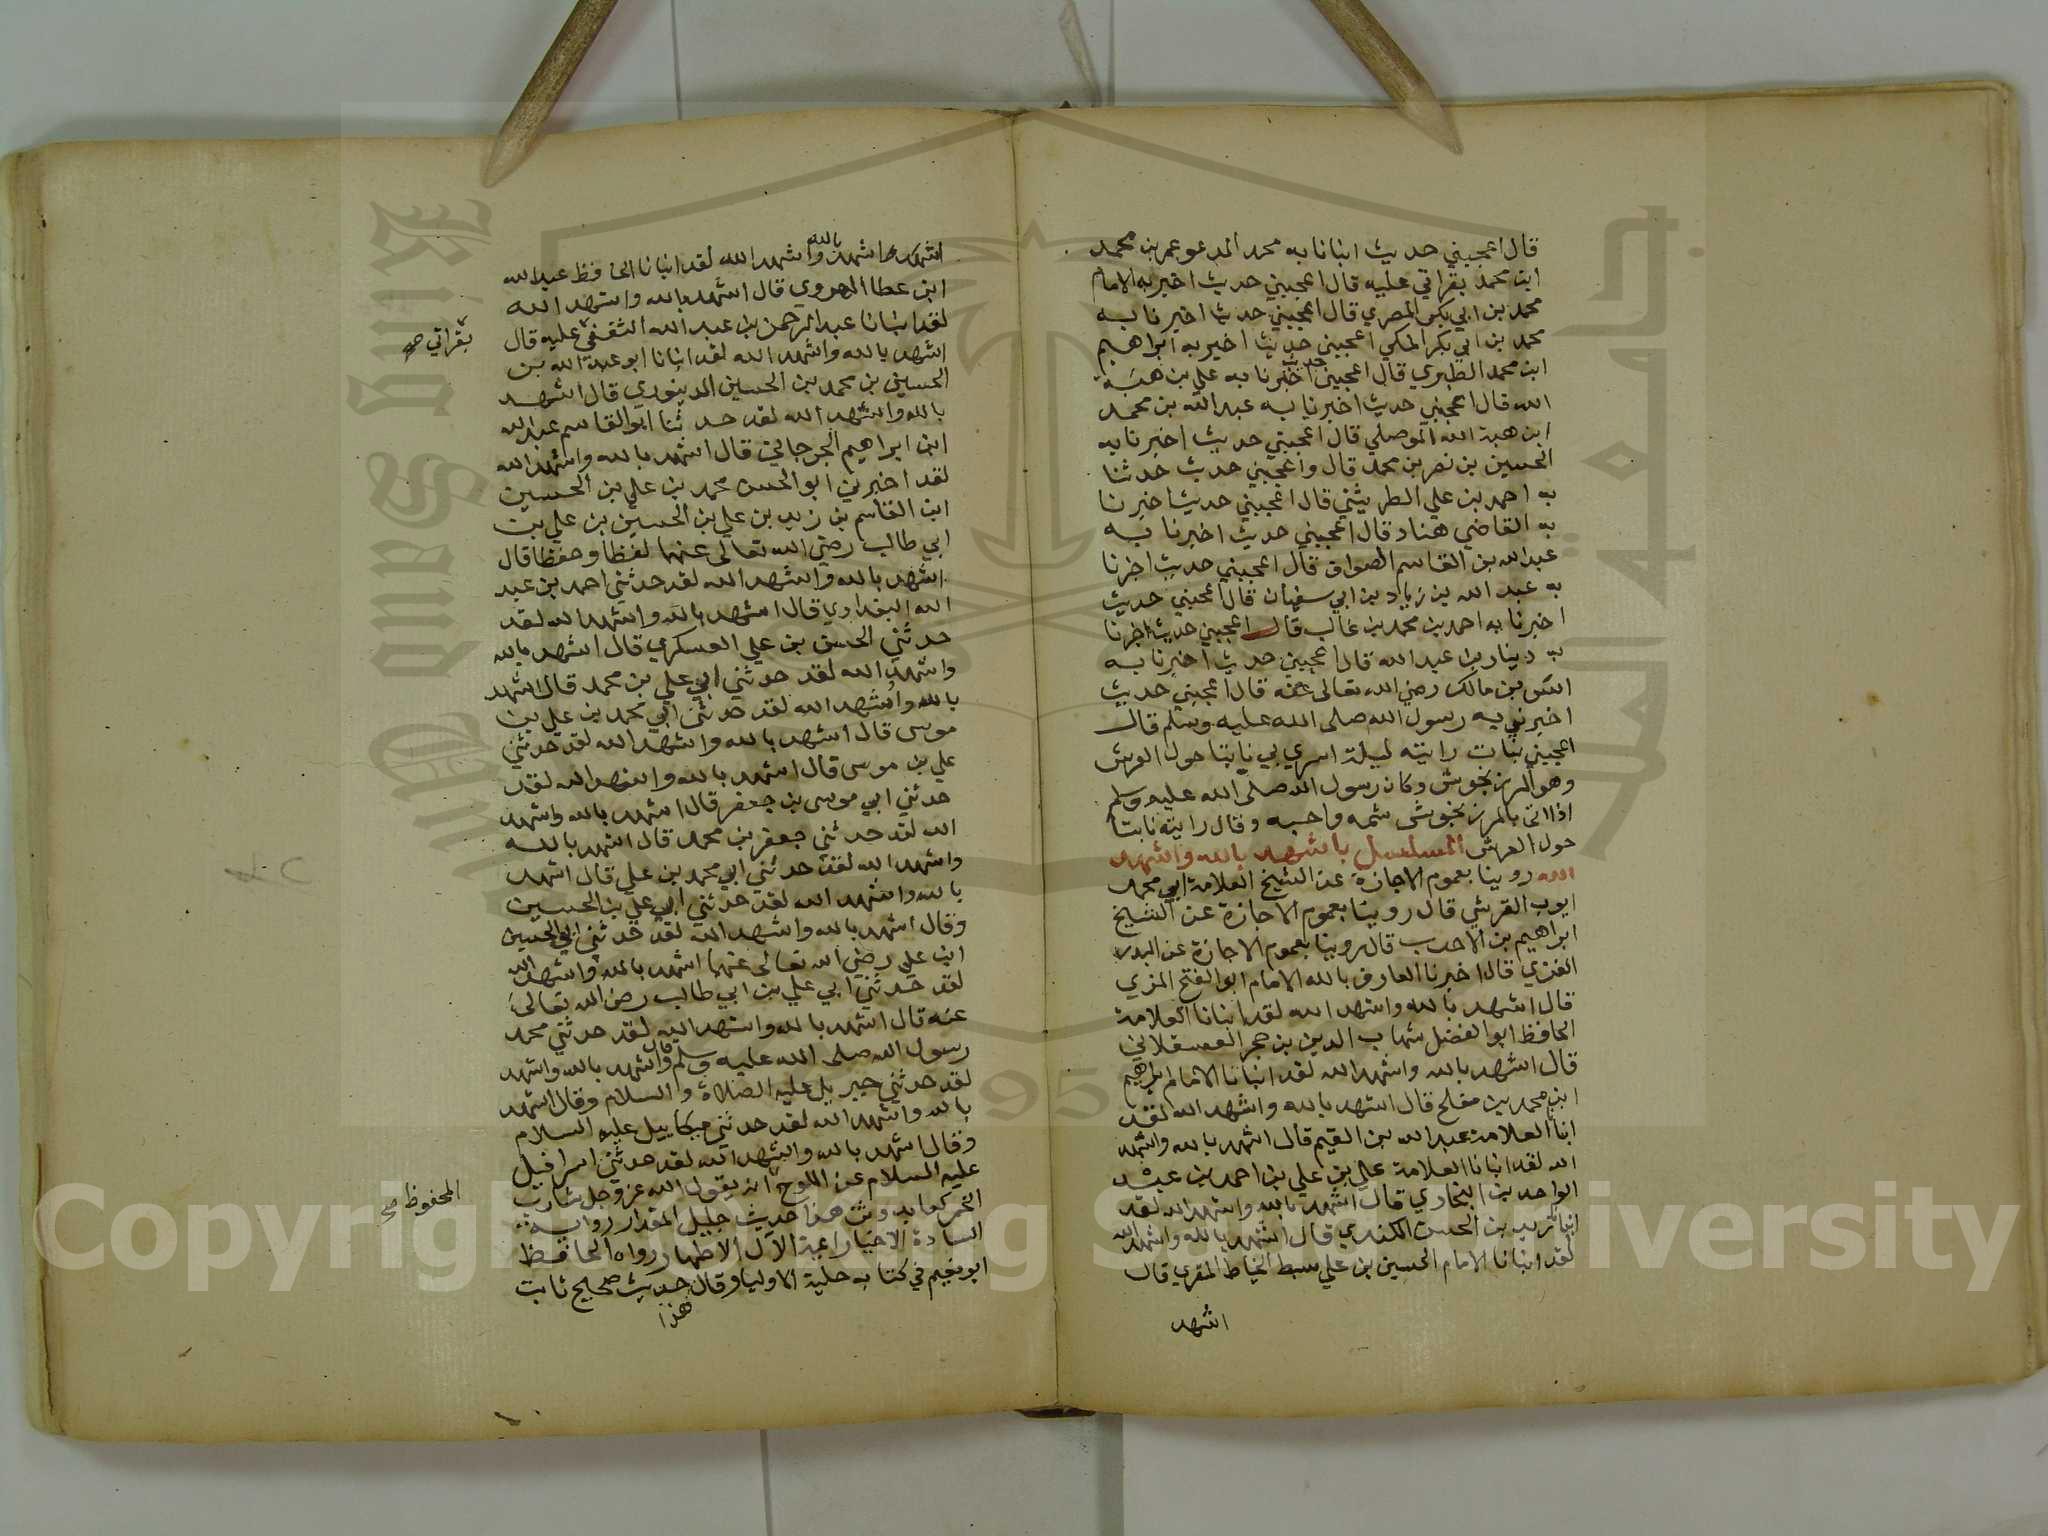 قال اعجبني حديث انبانا به محمد المدعو عمر بن محمد
ابن محمد بقراتي عليه قال اعجبني حديث اخبر به الامام
محمد بن ابي بكر المصري قال اعجبني حديث اخبرنا به
محمد بن ابي بكر المكي اعجبني حديث اخبر به ابراهيم
ابن محمد الطبري قال اعجبني حديث اخبرنا به علي بن هبة
الله قال اعجبني حديث اخبرنا به عبد الله بن محمد
ابن هبة الله الموصلي قال اعجبني حديث اخبرنا به
الحسين بن نصر بن محمد قال واعجبني حديث حدثنا
به احمد بن علي الطريثثي قال اعجبني حديث اخبرنا
به القاضي هناد قال اعجبني حديث اخبرنا به
عبد الله بن القاسم الصواف قال اعجبني حديث اخبرنا
به عبد الله بن زياد بن ابي سفيان قال اعجبني حديث
اخبرنا به احمد بن محمد بن غالب قال اعجبني حديث اخبرنا
به دينار بن عبد الله قال اعجبني حديث اخبرنا به
انس بن مالك رضي الله تعالى عنه قال اعجبني حديث
اخبرني به رسول الله صلى الله عليه وسلم قال
اعجبني نبات رايته ليلة اسري بي نابتا حول العرش
وهو المرزنجوش وكان رسول الله صلى الله عليه وسلم
اذا اتى بالمرزنجوش شمه واحبه وقال رايته نابتا
حول العرش المسلسل باشهد بالله واشهد
الله روينا بعموم الاجازة عن الشيخ العلامة ابي محمد
ايوب القرشي قال روينا بعموم الاجازة عن الشيخ
ابراهيم بن الاحدب قال روينا بعموم الاجازة عن البدر
الغزي قال اخبرنا العارف بالله الامام ابو الفتح المزي
قال اشهد بالله واشهد الله لقد انبانا العلامة
الحافظ ابو الفضل شهاب الدين بن حجر العسقلاني
قال اشهد بالله واشهد الله لقد انبانا الامام ابراهيم
ابن محمد بن مفلح قال اشهد بالله واشهد الله لقد
انبا العلامة عبد الله بن القيم قال اشهد بالله واشهد
الله لقد انبانا العلامة علي بن علي بن احمد بن عبد
الواحد بن البخاري قال اشهد بالله واشهد الله لقد
انبا زيد بن الحسن الكندي قال اشهد بالله واشهد الله
لقد انبانا الامام الحسين بن علي سبط الخياط المقري قال
اشهد
اشهد بالله واشهد الله لقد انبانا الحافظ عبد الله
ابن عطا الهروي قال اشهد بالله واشهد الله
لقد انبانا عبد الرحمن بن عبد الله الثقفي عليه قال
بقراتي صح
اشهد بالله واشهد الله لقد انبانا ابو عبد الله بن
الحسين بن محمد بن الحسين الدينوري قال اشهد
بالله واشهد الله لقد حدثنا ابو القاسم عبد الله
ابن ابراهيم الجرجاني قال اشهد بالله واشهد الله
لقد اخبرني ابو الحسن محمد بن علي بن الحسين
ابن القاسم بن زيد بن علي بن الحسين بن علي بن
ابي طالب رضي الله تعالى عنهما لفظا وحفظا قال
اشهد بالله واشهد الله لقد حدثني احمد بن عبد
الله البغدادي قال اشهد بالله واشهد الله لقد
حدثني الحسن بن علي العسكري قال اشهد بالله
واشهد الله لقد حدثني ابي علي بن محمد قال اشهد
بالله واشهد الله لقد حدثني ابي محمد بن علي بن
موسى قال اشهد بالله واشهد الله لقد حدثني
علي بن موسى قال اشهد بالله واشهد الله لقد
حدثني ابي موسى بن جعفر قال اشهد بالله واشهد
الله لقد حدثني جعفر بن محمد قال اشهد بالله
واشهد الله لقد حدثني ابي محمد بن علي قال اشهد
بالله واشهد الله لقد حدثني ابي علي بن الحسين
وقال اشهد بالله واشهد الله لقد حدثني ابي الحسين
ابن علي رضي الله تعالى عنهما اشهد بالله واشهد الله
لقد حدثني ابي علي بن ابي طالب رضي الله تعالى
عنه قال اشهد بالله واشهد الله لقد حدثني محمد
رسول الله صلى الله عليه وسلم وقال اشهد بالله واشهد
لقد حدثني جبريل عليه الصلاة والسلام وقال اشهد
بالله واشهد الله لقد حدثني ميكاييل عليه السلام
وقال اشهد بالله واشهد الله لقد حدثني اسرافيل
عليه السلام عن اللوح ان يقول الله عز وجل شارب
المحفوظ صح
الخمر كعابد وثن هذا حديث جليل المقدار رواية
السادة الاخيار ائمة الآل الاطهار رواه الحافظ
ابو نعيم في كتابه حلية الاوليا وقال حديث صحيح ثابت
هذا
King Saud University
جامعة
1957
Copyright © King Saud University